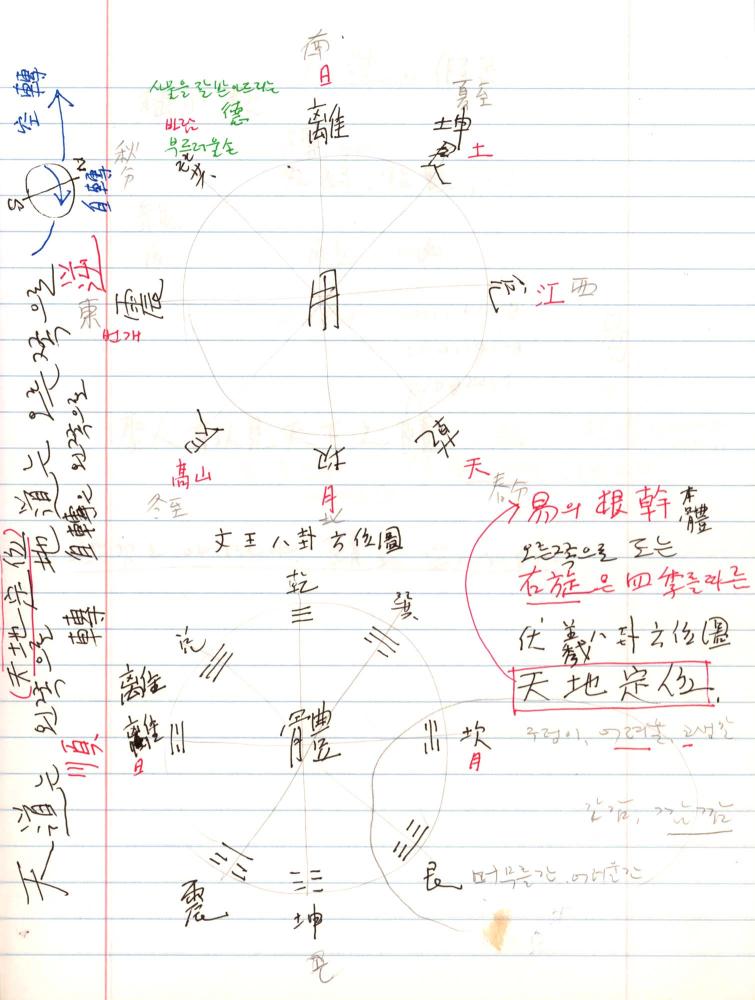 南
日
離
夏至
坤
土
德
바람
부드러울손
秋分
東
震
번개
用
兌
江
西
艮
高山
冬至
坎
月
北
乾
天
春分
文王八卦方位圖
易의 根幹
本體
오른쪽으로 도는
右旋은 四季를 따른
伏羲八卦方位圖
天地定位
乾
巽
兌
離
離
日
體
坎
月
震
坤
艮
머무를간, 어려운간
空轉
N
S
自轉
天道는 왼쪽으로 地道는 오른쪽으로
(天地定位)
順
轉
逆
自轉는 왼쪽으로